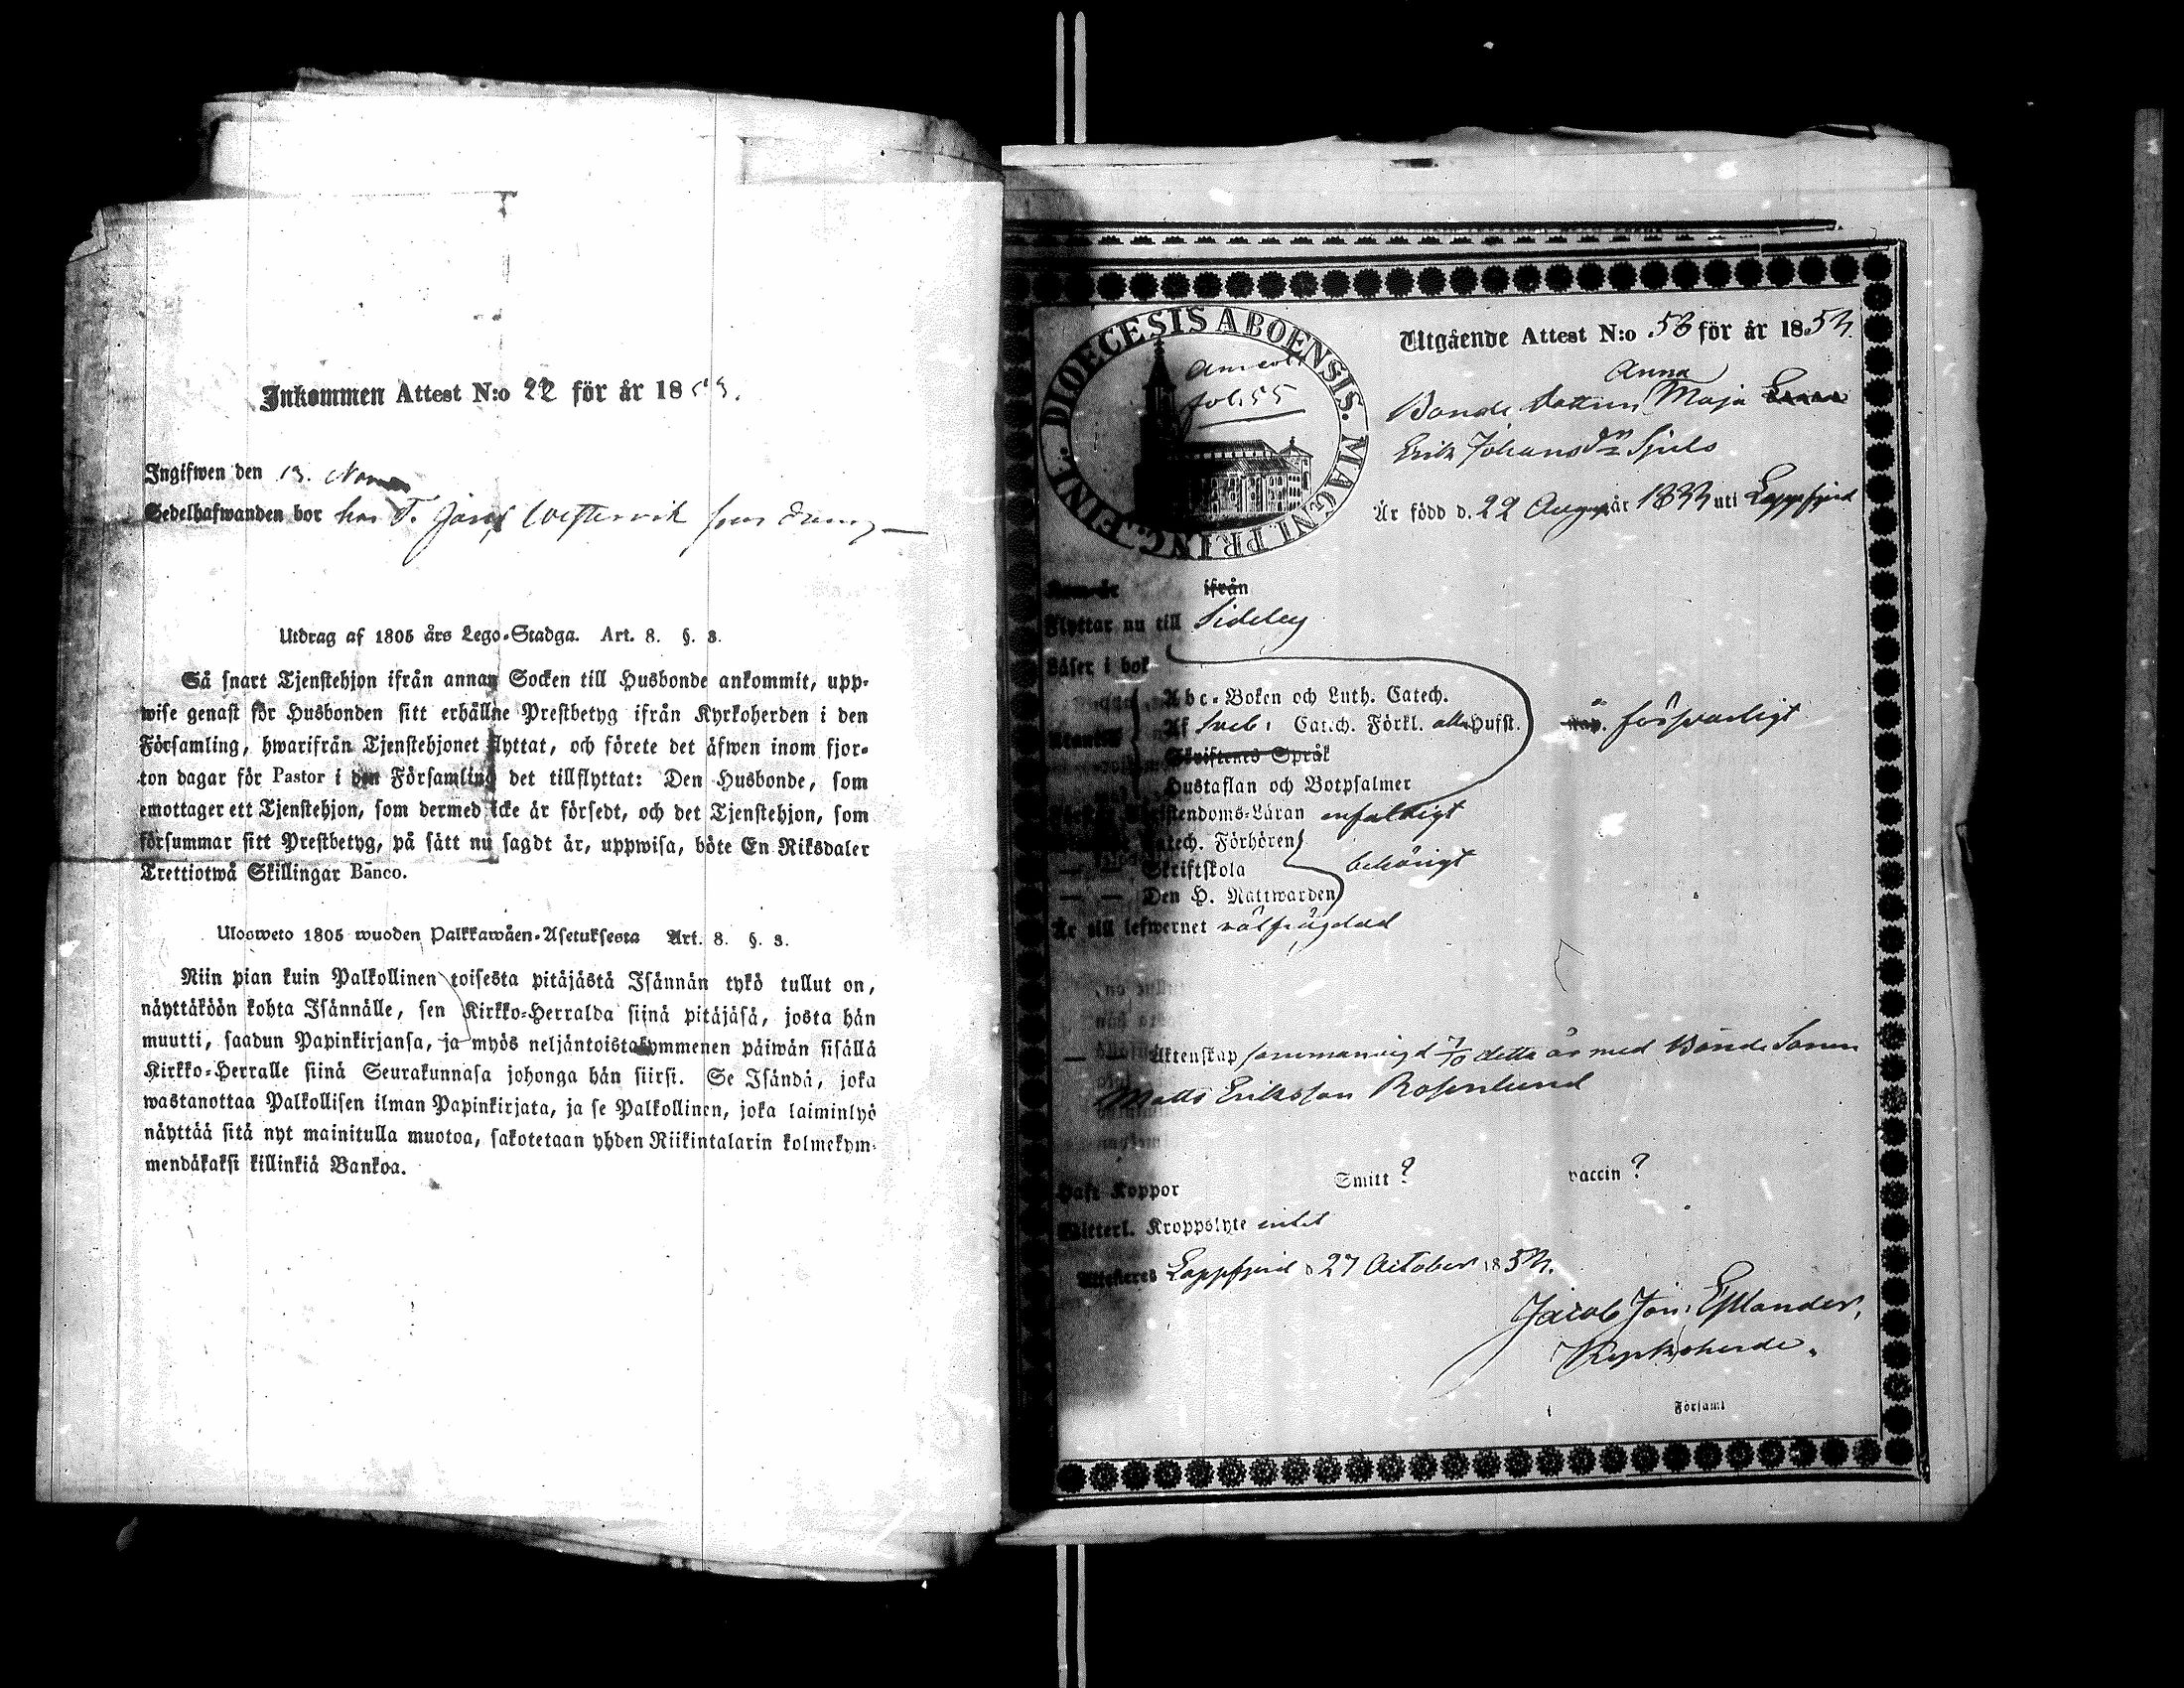 Inkommen Attest N:o 22 för år 18
Ingifwen den 13. Nov
Sedelhafwanden bor hos T. Josef Westervik som dräng
Utdrag af 1805 års Lego-Stadga. Art. 8. §. 3.
Så snart Tjenstehjon ifrån annan Socken till Husbonde ankommit, upp-
wise genast för Husbonden sitt erhållne Prestbetyg ifrån Kyrkoherden i den
Församling, hwarifrån Tjenstehjonet flyttat, och förete det äfwen inom fjor-
ton dagar för Pastor i den Församling det tillflyttat: Den Husbonde, som
emottager ett Tjenstehjon, som dermed icke är försedt, och det Tjenstehjon, som
försummar sitt Prestbetyg, på sätt nu sagdt är, uppwisa, böte En Riksdaler
Trettiotwå Skillingar Banco.
Ulosweto 1805 wuoden Palkkawäen-Asetuksesta Art. 8. §. 3.
Niin pian kuin Palkollinen toisesta pitäjästä Isännän tykö tullut on,
näyttäköön kohta Isännälle, sen Kirkko-Herralda siinä pitäjäsä, josta hän
muutti, saadun Papinkirjansa, ja myös neljäntoistakymmenen päiwän sisällä
Kirkko-Herralle siinä Seurakunnasa johonga hän siirsi. Se Isändä, joka
wastanottaa Palkollisen ilman Papinkirjata, ja se Palkollinen, joka laiminlyö
näyttää sitä nyt mainitulla muotoa, sakotetaan yhden Riikintalarin kolmekym-
mendäkaksi killinkiä Bankoa.
DIOECESIS ABOENSIS. MAGNI. PRINC. FINL.
fol. 55
Utgående Attest N:o 58 för år 1854.
Anna
Bonde dottren Maja
Erik Johansdr Sjels
Är född d. 22 Aug år 1833 uti Lappfjerd
Kom år ifrån
Flyttar nu till Sideby
Läser i bok
Abc-Boken och Luth. Catech.
Af Sveb: Catech. Förkl. alla Hufst. försvarligt
Skriftenes Språk
Hustaflan och Botpsalmer
Christendoms-Läran enfaldigt
Catech. Förhören
— — Skriftskola behörigt
— — Den H. Nattwarden
Är till lefwernet välfrägdad
— Äktenskap sammanvigd 7/10 detta år med Bonde Sonen
Matts Eriksson Rosenlund
Haft Koppor Smitt? vaccin?
Witterl. Kroppslyte intet
Attesteres Lappfjerd d 27 October 1854.
Jacob Jon: Estlander,
Kyrkoherde.
i Församl